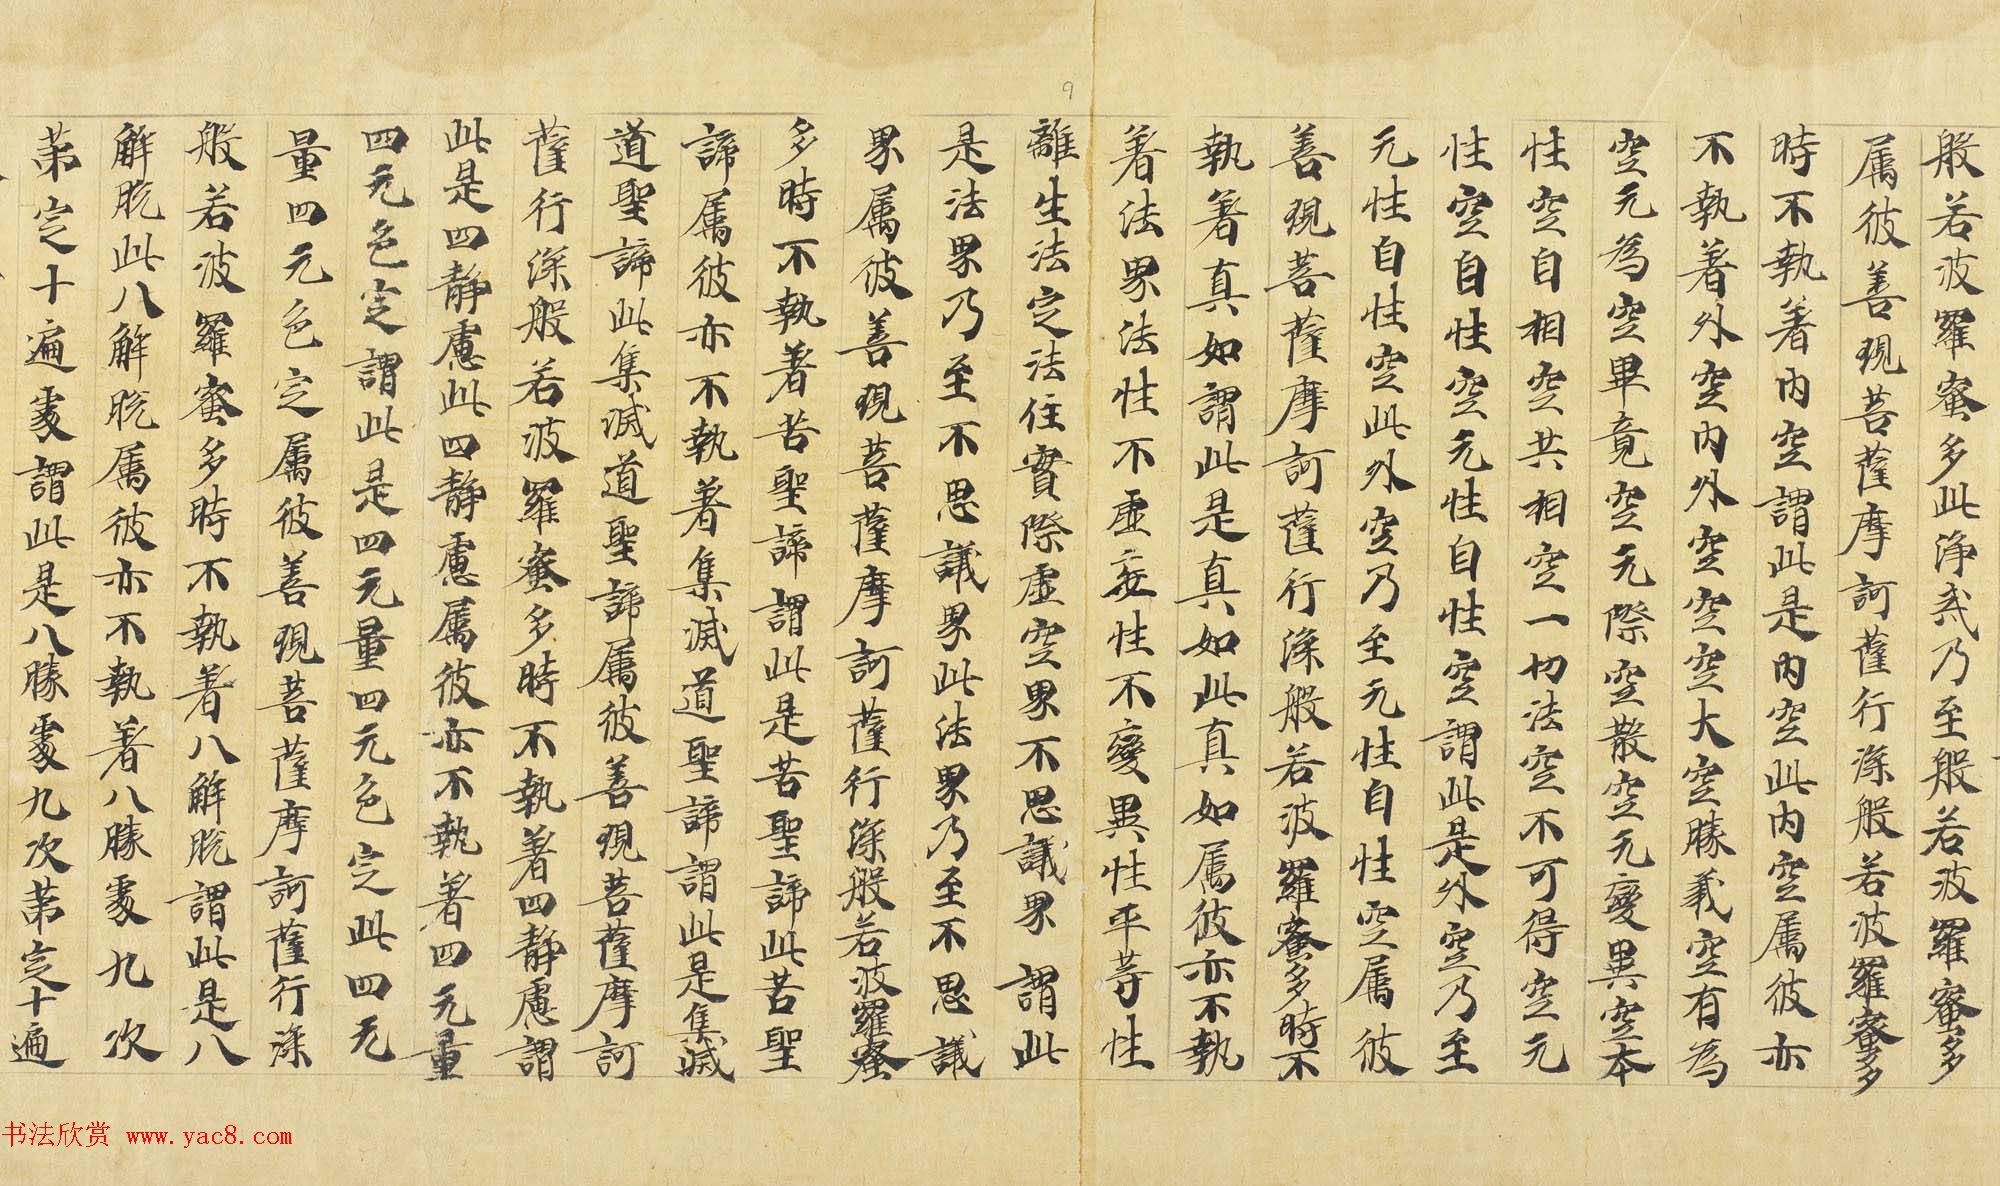 般若波羅蜜多此淨戒乃至般若波羅蜜多
属彼善現菩薩摩訶薩行深般若波羅蜜多
時不執著內空謂此是內空此內空属彼亦
不執著外空內外空空空大空勝義空有為
空无為空畢竟空无際空散空无變異空本
性空自相空共相空一切法空不可得空无
性空自性空无性自性空謂此是外空乃至
无性自性空此外空乃至无性自性空属彼
善現菩薩摩訶薩行深般若波羅蜜多時不
執著真如謂此是真如此真如属彼亦不執
著法界法性不虛妄性不變異性平等性
離生法定法住實際虛空界不思議界謂此
是法界乃至不思議界此法界乃至不思議
界属彼善現菩薩摩訶薩行深般若波羅蜜
多時不執著苦聖諦謂此是苦聖諦此苦聖
諦属彼亦不執著集滅道聖諦謂此是集滅
道聖諦此集滅道聖諦属彼善現菩薩摩訶
薩行深般若波羅蜜多時不執著四靜慮謂
此是四靜慮此四靜慮属彼亦不執著四无量
四无色定謂此是四无量四无色定此四无
量四无色定属彼善現菩薩摩訶薩行深
般若波羅蜜多時不執著八解脫謂此是八
解脫此八解脫属彼亦不執著八勝處九次
第定十遍處謂此是八勝處九次第定十遍
9
书法欣赏 www.yac8.com